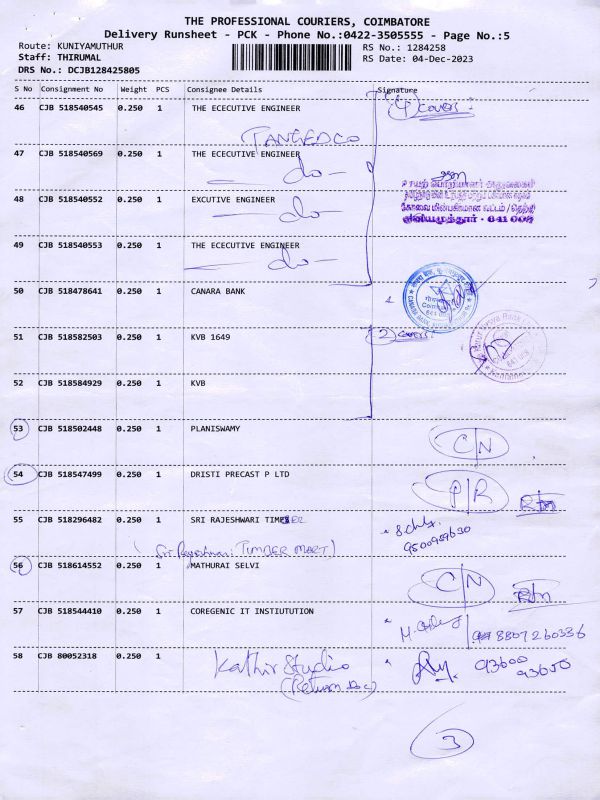 THE PROFESSIONAL COURIERS, COIMBATORE
Delivery Runsheet - PCK - Phone No.:0422-3505555 - Page No.:5
Route: KUNIYAMUTHUR RS No.: 1284258
Staff: THIRUMAL RS Date: 04-Dec-2023
DRS No.: DCJB128425805
S No Consignment No Weight PCS Consignee Details Signature
46 CJB 518540545 0.250 1 THE ECECUTIVE ENGINEER (4) COVERS:
TANGEDCO
47 CJB 518540569 0.250 1 THE ECECUTIVE ENGINEER
do
48 CJB 518540552 0.250 1 EXCUTIVE ENGINEER
do
49 CJB 518540553 0.250 1 THE ECECUTIVE ENGINEER
do
50 CJB 518478641 0.250 1 CANARA BANK
51 CJB 518582503 0.250 1 KVB 1649 (2) covers:
52 CJB 518584929 0.250 1 KVB
53 CJB 518502448 0.250 1 PLANISWAMY C/N
54 CJB 518547499 0.250 1 DRISTI PRECAST P LTD P/R Rtn
55 CJB 518296482 0.250 1 SRI RAJESHWARI TIMBER
(Sri Rajeshwari TIMBER MART)
56 CJB 518614552 0.250 1 MATHURAI SELVI C/N Rtn
57 CJB 518544410 0.250 1 COREGENIC IT INSTIUTUTION 8807260336
58 CJB 80052318 0.250 1 Kathir Studio 93600 93650
(Return Doc)
3